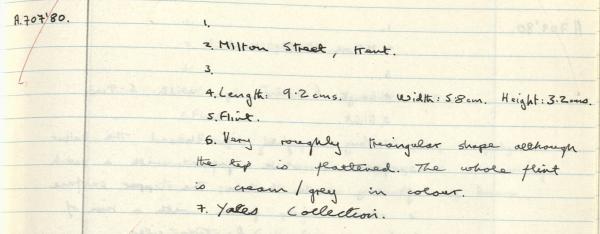 A.707'80.
1.
2. Milton Street, Kent.
3.
4. Length: 9.2 cms. Width: 5.8 cm. Height: 3.2 cms.
5. Flint.
6. Very roughly triangular shape although
the top is flattened. The whole flint
is cream/grey in colour.
7. Yates Collection.